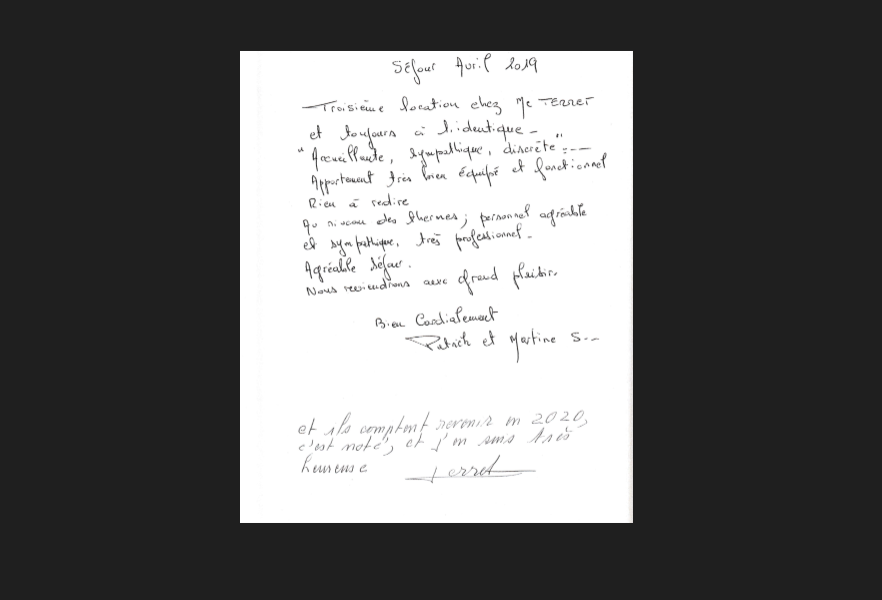 Séjour Avril 2019
Troisième location chez Me TERRET
et toujours à l'identique -
"Accueillante, sympathique, discrète" :---
Appartement très bien équipé et fonctionnel
Rien à redire
Au niveau des thermes ; personnel agréable
et sympathique, très professionnel -
Agréable séjour.
Nous reviendrons avec grand plaisir.
Bien Cordialement
Patrick et Martine S--
et ils comptent revenir en 2020,
c'est noté, et j'en suis très
heureuse Terret